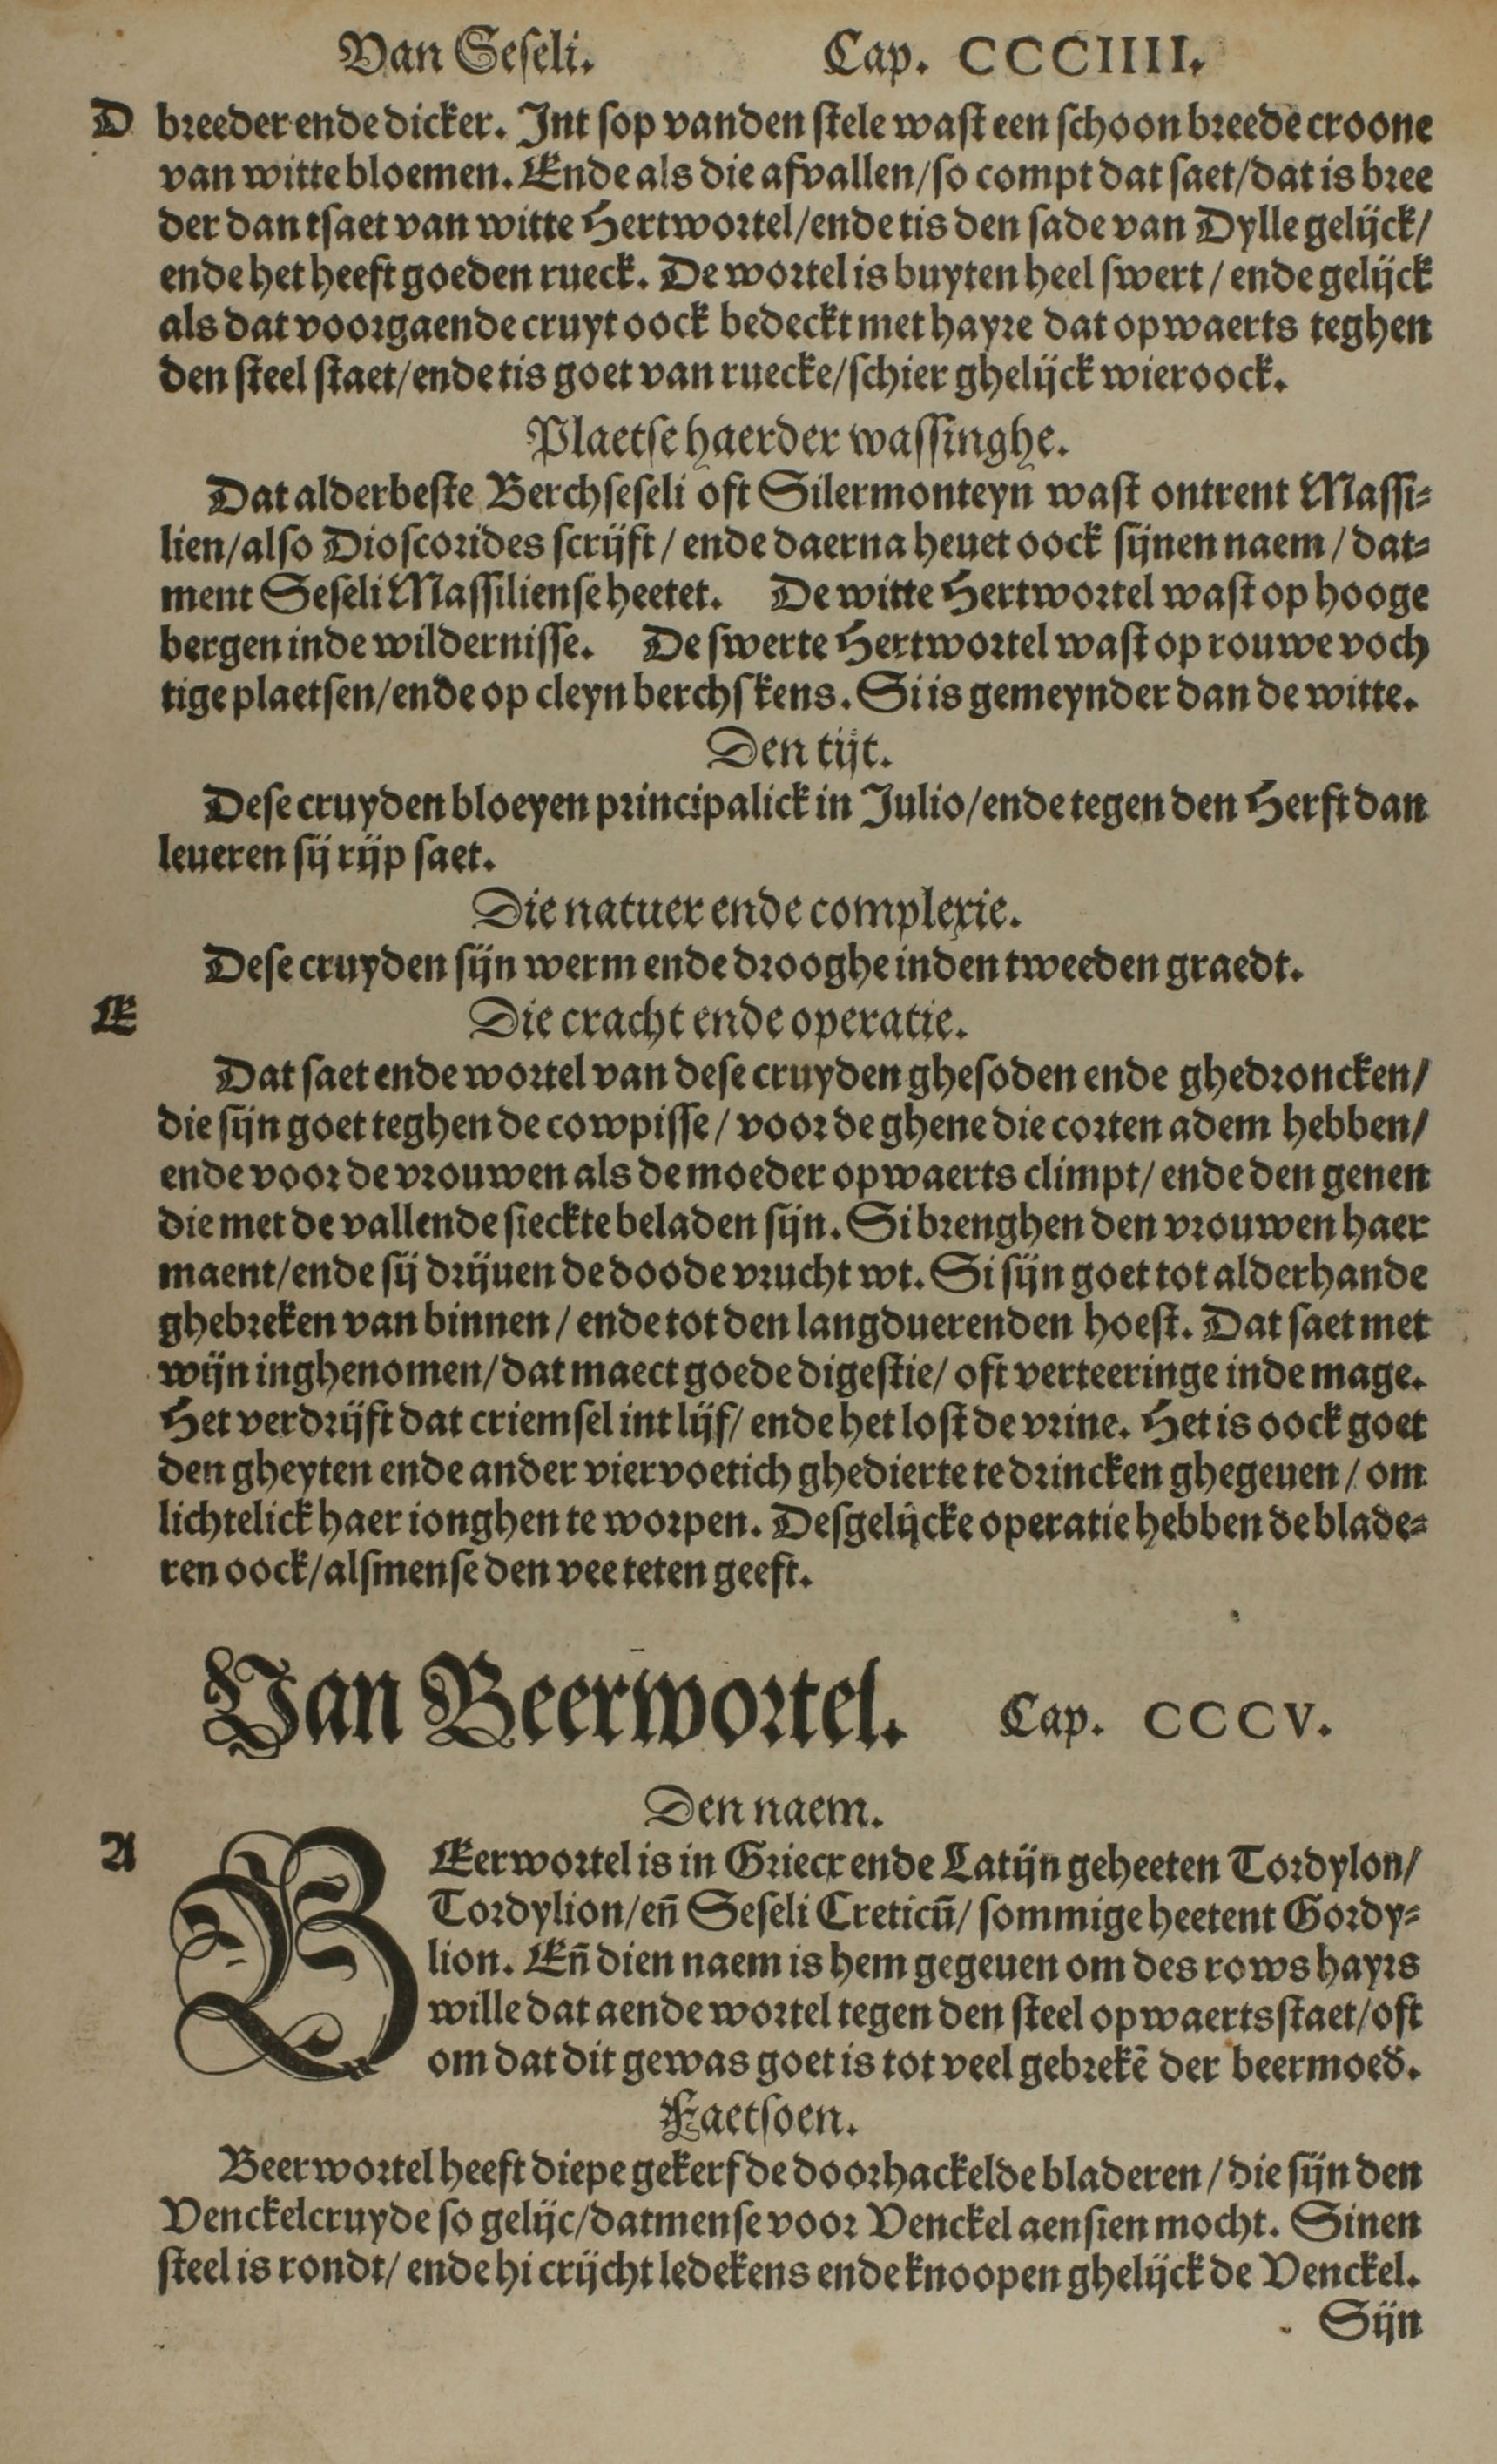 Van Seseli. Cap. CCCIIII.
D breeder ende dicker. Int sop vanden stele wast een schoon breede croone
van witte bloemen. Ende als die afvallen/so compt dat saet/dat is bree
der dan tsaet van witte Hertwortel/ende tis den sade van Dylle gelijck/
ende het heeft goeden rueck. De wortel is buyten heel swert/ende gelijck
als dat voorgaende cruyt oock bedeckt met hayre dat opwaerts teghen
den steel staet/ende tis goet van ruecke/schier ghelijck wieroock.
Plaetse haerder wassinghe.
Dat alderbeste Berchseseli oft Silermonteyn wast ontrent Massi-
lien/also Dioscorides scrijft/ende daerna heuet oock sijnen naem/dat-
ment Seseli Massiliense heetet. De witte Hertwortel wast op hooge
bergen inde wildernisse. De swerte Hertwortel wast op rouwe voch
tige plaetsen/ende op cleyn berchskens. Si is gemeynder dan de witte.
Den tijt.
Dese cruyden bloeyen principalick in Julio/ende tegen den Herft dan
leueren sij rijp saet.
Die natuer ende complexie.
Dese cruyden sijn werm ende drooghe inden tweeden graedt.
E Die cracht ende operatie.
Dat saet ende wortel van dese cruyden ghesoden ende ghedroncken/
die sijn goet teghen de cowpisse/voor de ghene die corten adem hebben/
ende voor de vrouwen als de moeder opwaerts climpt/ende den genen
die met de vallende sieckte beladen sijn. Si brenghen den vrouwen haer
maent/ende sij drijuen de doode vrucht wt. Si sijn goet tot alderhande
ghebreken van binnen/ende tot den langduerenden hoest. Dat saet met
wijn inghenomen/dat maect goede digestie/oft verteeringe inde mage.
Het verdrijft dat criemsel int lijf/ende het lost de vrine. Het is oock goet
den gheyten ende ander viervoetich ghedierte te drincken ghegeuen/om
lichtelick haer ionghen te worpen. Desgelijcke operatie hebben de blade-
ren oock/alsmense den vee teten geeft.
Van Beerwortel. Cap. CCCV.
Den naem.
A BEerwortel is in Griecx ende Latijn geheeten Tordylon/
Tordylion/eñ Seseli Creticū/sommige heetent Gordy-
lion. Eñ dien naem is hem gegeuen om des rows hayrs
wille dat aende wortel tegen den steel opwaerts staet/oft
om dat dit gewas goet is tot veel gebrekē der beermoed.
Faetsoen.
Beerwortel heeft diepe gekerfde doorhackelde bladeren/die sijn den
Venckelcruyde so gelijc/datmense voor Venckel aensien mocht. Sinen
steel is rondt/ende hi crijcht ledekens ende knoopen ghelijck de Venckel.
Sijn